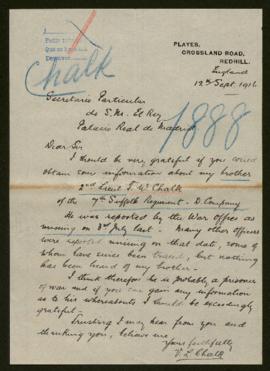 PLAYES,
CROSSLAND ROAD,
REDHILL.
England
12th Sept. 1916
Chalk
1888
Secretario Particular
de S.M. El Rey
Palacio Real de Madrid
Dear Sir,
I should be very grateful if you could
obtain some information about my brother
2nd Lieut T. W. Chalk
of the 7th Suffolk Regiment - D Company
He was reported by the War Office as
missing on 3rd July last. Many other officers
were reported missing on that date, some of
whom have since been traced, but nothing
has been heard of my brother.
I think therefore he is probably a prisoner
of war and if you can gain any information
as to his whereabouts I should be exceedingly
grateful.
Trusting I may hear from you and
thanking you, believe me
Yours faithfully
V. L. Chalk